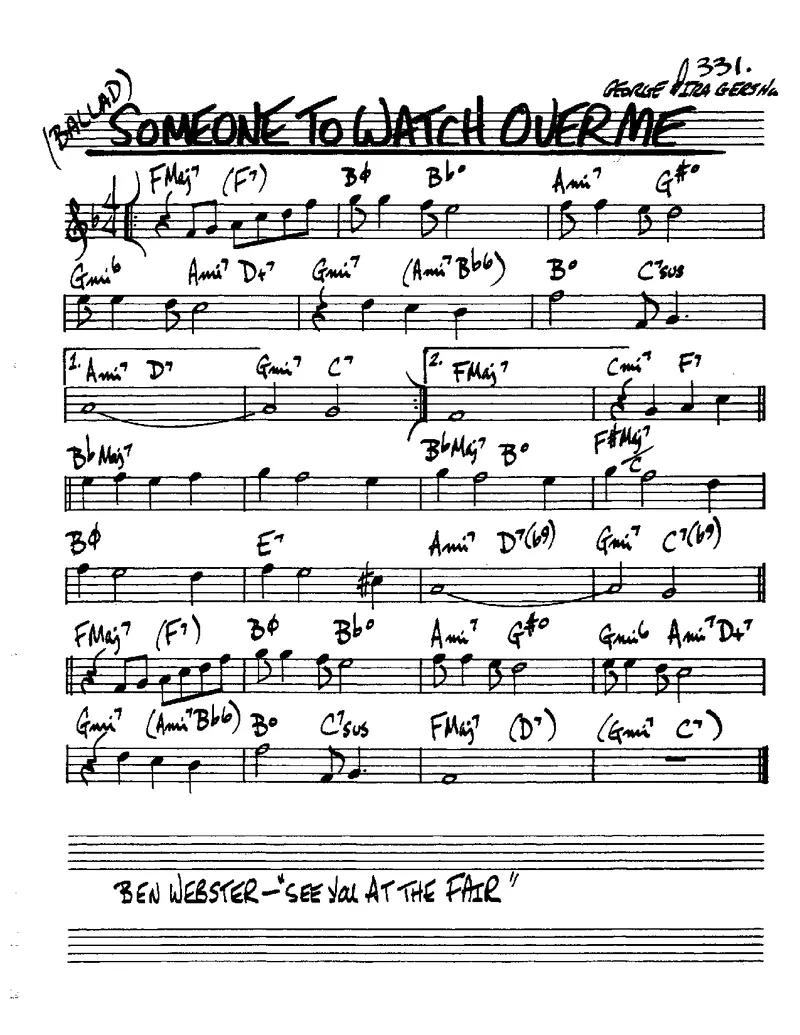 331.
(BALLAD)
GEORGE & IRA GERSHWIN
SOMEONE TO WATCH OVER ME
FMaj7 (F7) Bø Bb° Ami7 G#°
4/4
Gmi6 Ami7 D+7 Gmi7 (Ami7 Bb6) B° C7sus
1. Ami7 D7 Gmi7 C7 2. FMaj7 Cmi7 F7
BbMaj7 BbMaj7 B° F#Maj7/C
Bø E7 Ami7 D7(b9) Gmi7 C7(b9)
FMaj7 (F7) Bø Bb° Ami7 G#° Gmi6 Ami7 D+7
Gmi7 (Ami7 Bb6) B° C7sus FMaj7 (D7) (Gmi7 C7)
BEN WEBSTER – "SEE YOU AT THE FAIR"